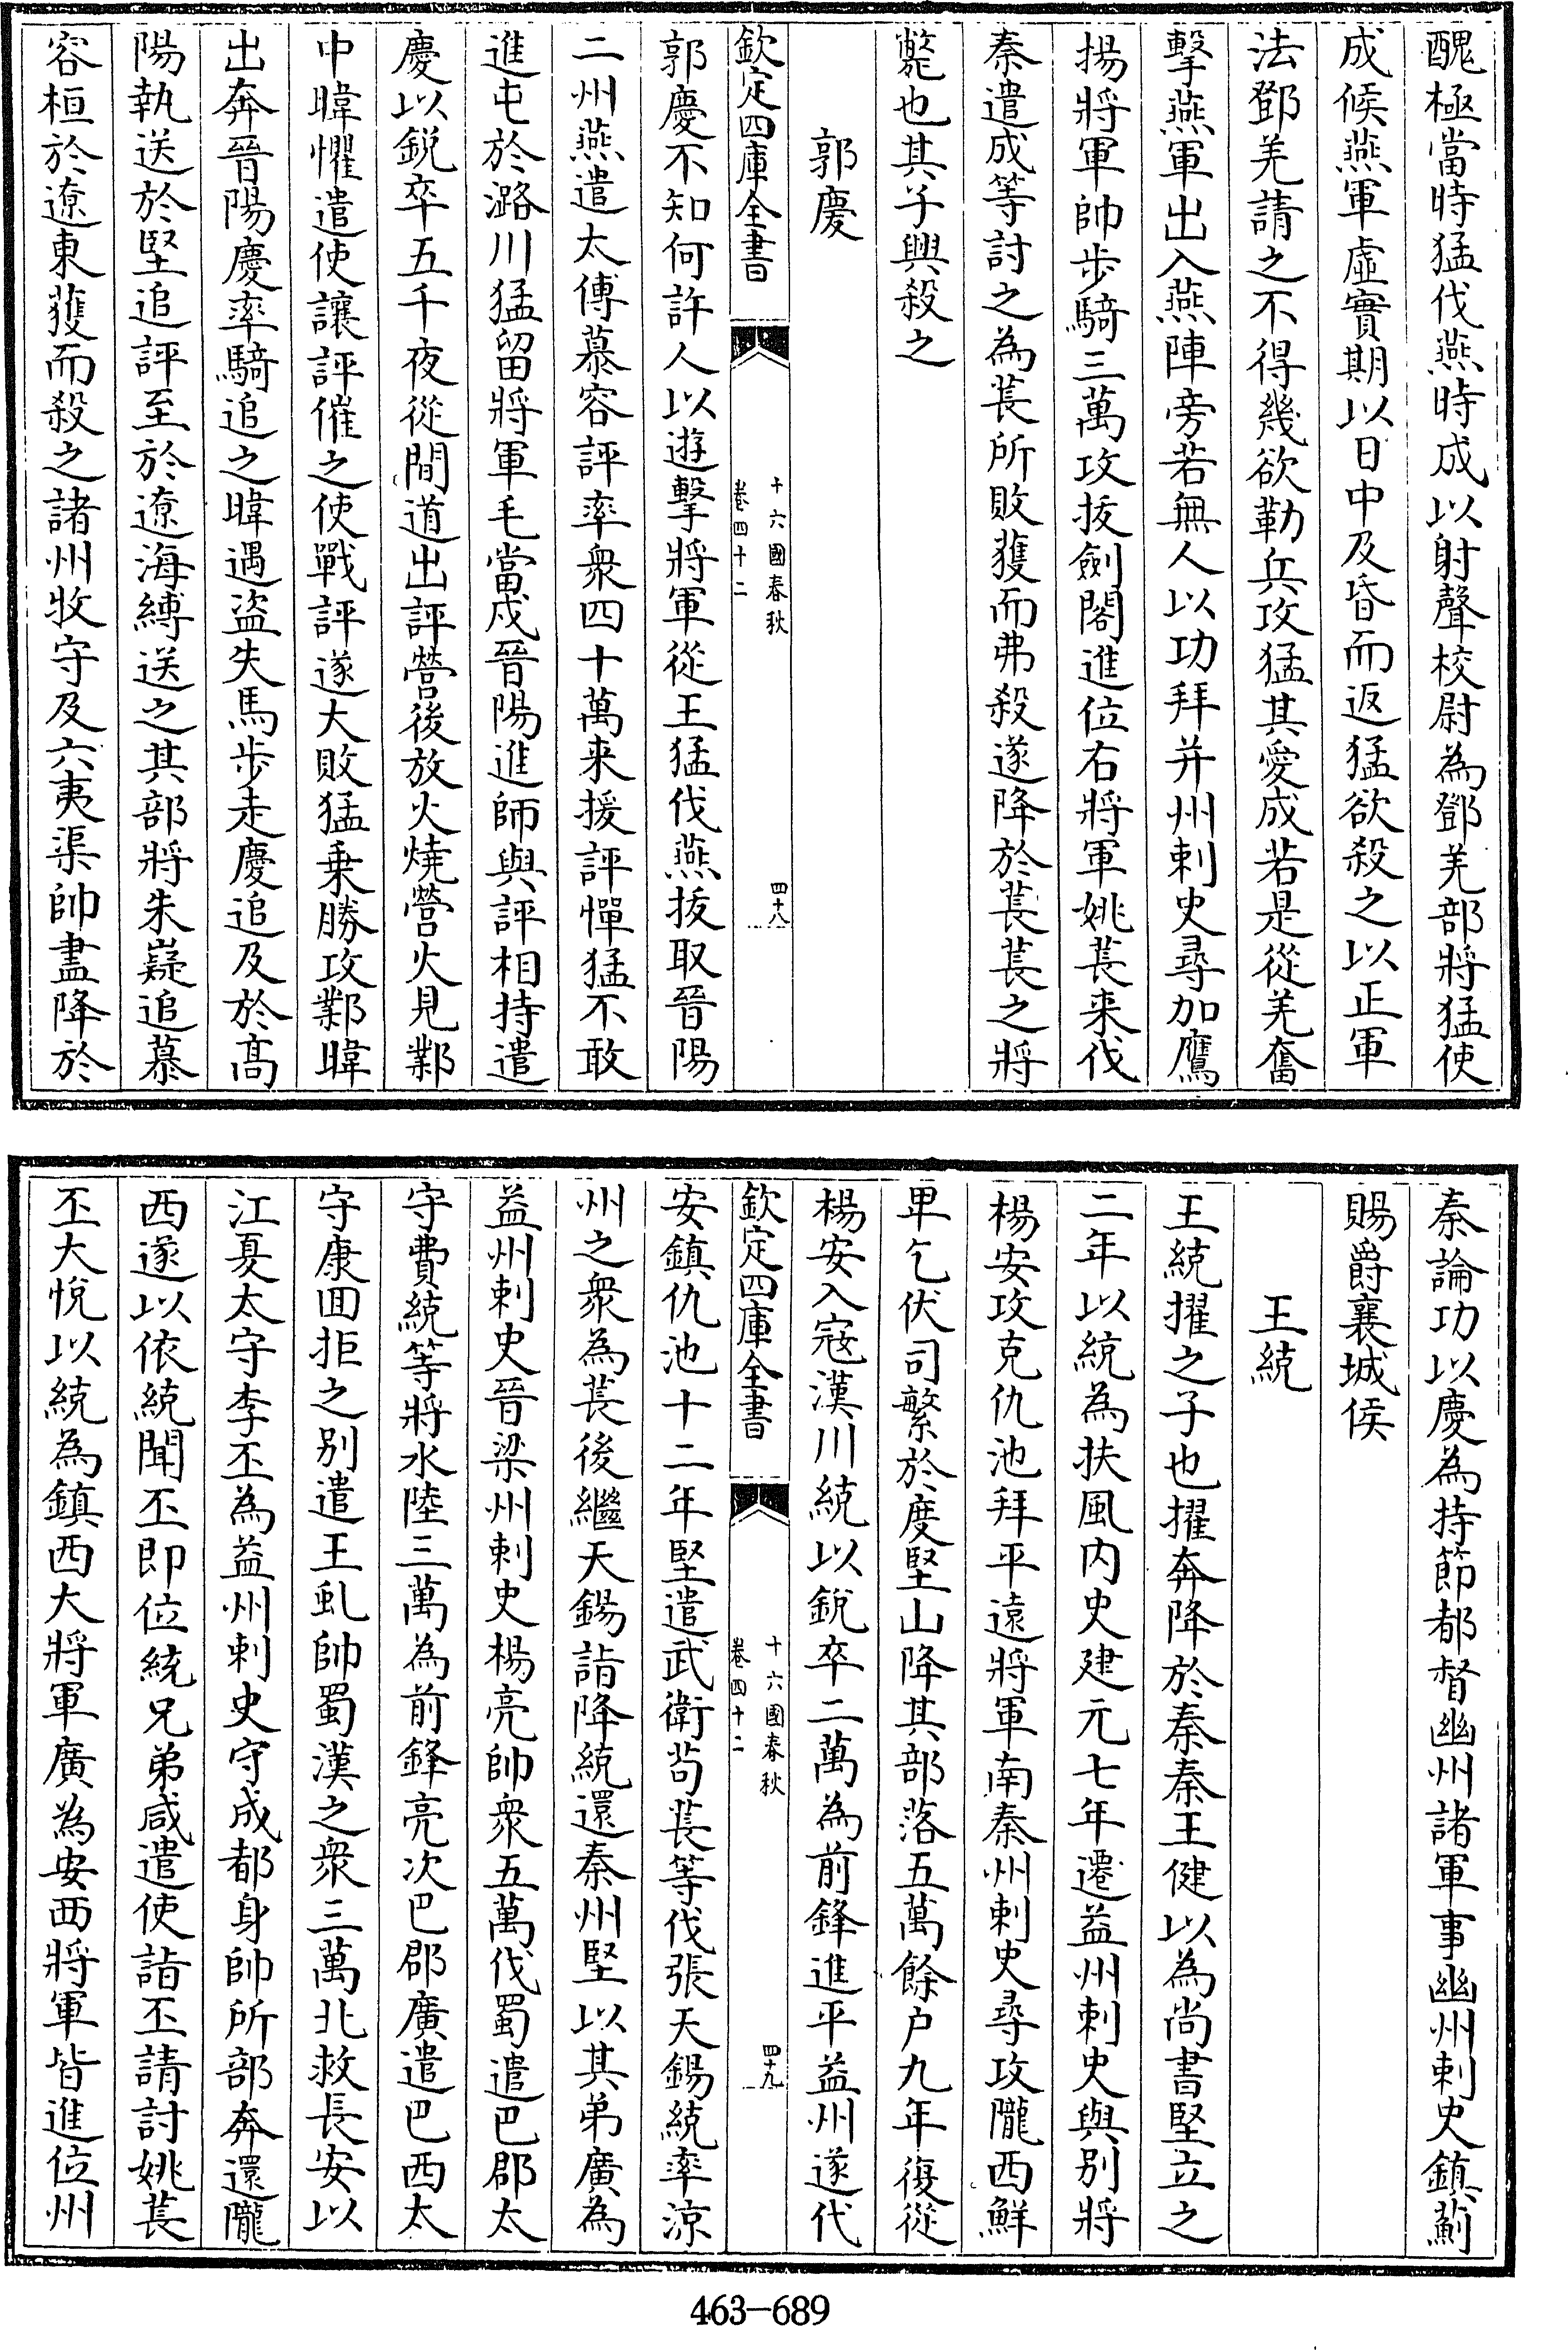 醜極當時猛伐燕時成以射聲校尉為鄧羌部將猛使
成候燕軍虛實期以日中及昏而返猛欲殺之以正軍
法鄧羌請之不得幾欲勒兵攻猛其愛成若是從羌奮
擊燕軍出入燕陣旁若無人以功拜并州刺史尋加鷹
揚將軍帥步騎三萬攻拔劍閣進位右將軍姚萇来伐
秦遣成等討之為萇所敗獲而弗殺遂降於萇萇之將
斃也其子興殺之
郭慶
欽定四庫全書
十六國春秋
卷四十二
四十八
郭慶不知何許人以遊擊將軍從王猛伐燕拔取晉陽
二州燕遣太傅慕容評率衆四十萬来援評憚猛不敢
進屯於潞川猛留將軍毛當戍晉陽進師與評相持遣
慶以銳卒五千夜從間道出評營後放火燒營火見鄴
中暐懼遣使讓評催之使戰評遂大敗猛乗勝攻鄴暐
出奔晉陽慶率騎追之暐遇盜失馬步走慶追及於高
陽執送於堅追評至於遼海縛送之其部將朱嶷追慕
容桓於遼東獲而殺之諸州牧守及六夷渠帥盡降於
秦論功以慶為持節都督幽州諸軍事幽州刺史鎮薊
賜爵襄城侯
王統
王統擢之子也擢奔降於秦秦王健以為尚書堅立之
二年以統為扶風内史建元七年遷益州刺史與别將
楊安攻克仇池拜平遠將軍南秦州刺史尋攻隴西鮮
卑乞伏司繁於度堅山降其部落五萬餘户九年復從
楊安入寇漢川統以銳卒二萬為前鋒進平益州遂代
欽定四庫全書
十六國春秋
卷四十二
四十九
安鎮仇池十二年堅遣武衛茍萇等伐張天錫統率涼
州之衆為萇後繼天錫詣降統還秦州堅以其弟廣為
益州刺史晉梁州刺史楊亮帥衆五萬伐蜀遣巴郡太
守費統等將水陸三萬為前鋒亮次巴郡廣遣巴西太
守康囬拒之别遣王虬帥蜀漢之衆三萬北救長安以
江夏太守李丕為益州刺史守成都身帥所部奔還隴
西遂以依統聞丕即位統兄弟咸遣使詣丕請討姚萇
丕大悅以統為鎮西大將軍廣為安西將軍皆進位州
463-689